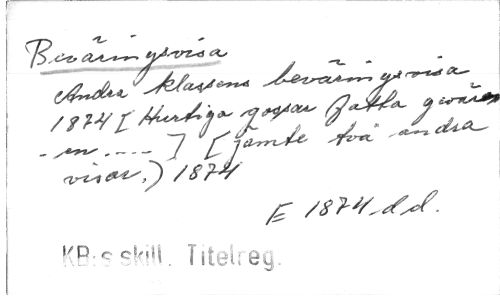 Beväringsvisa
Andra klassens beväringsvisa
1874 [Hurtiga gossar fatta gevären
- en .... ] [jämte två andra
visor.) 1874
E 1874 d d.
KB:s skill. Titelreg.